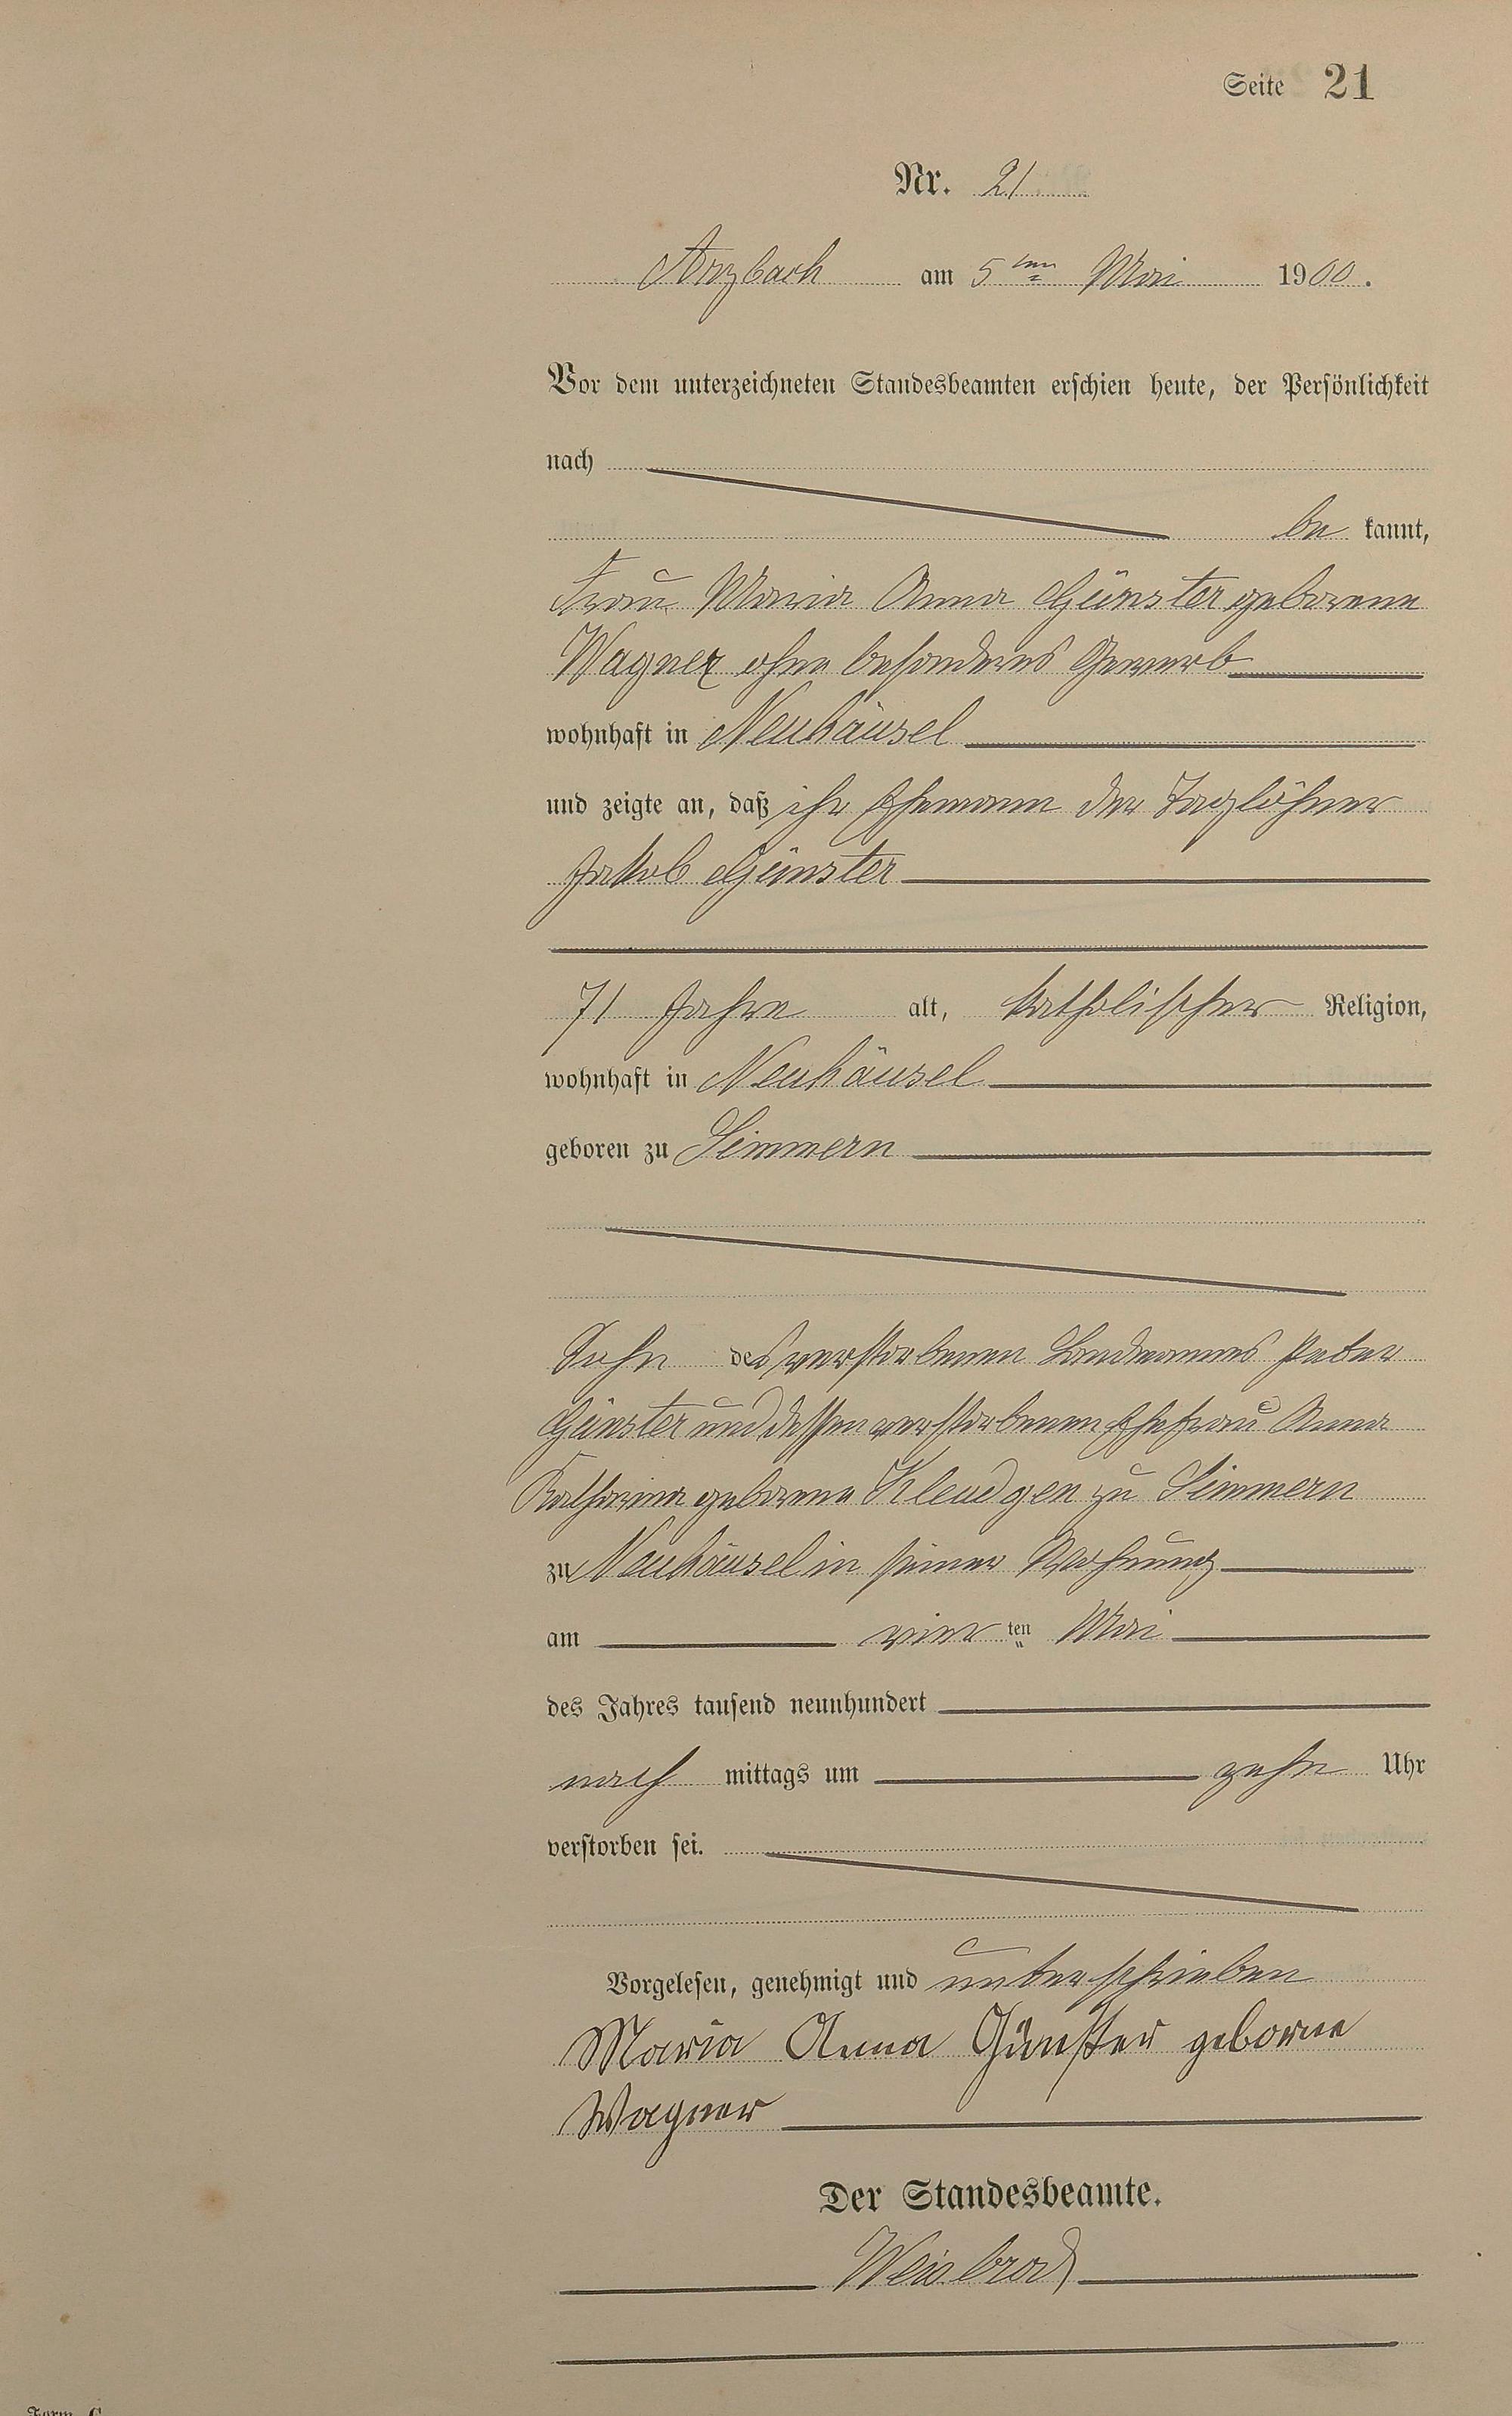 Seite 21
Nr. 21
Arzbach am 5ten Mai 1900.
Vor dem unterzeichneten Standesbeamten erschien heute, der Persönlichkeit
nach
be kannt,
Frau Maria Anna Günster geborene
Wagner ohne besonderes Gewerb
wohnhaft in Neuhäusel
und zeigte an, daß ihr Ehemann der Taglöhner
Jakob Günster
71 Jahre alt, katholischer Religion,
wohnhaft in Neuhäusel
geboren zu Simmern
Sohn des verstorbenen Landmannes Peter
Günster und dessen verstorbenen Ehefrau Anna
Katharina geborene Kleudgen zu Simmern
zu Neuhäusel in seiner Wohnung
am vier ten Mai
des Jahres tausend neunhundert
nach mittags um zehn Uhr
verstorben sei.
Vorgelesen, genehmigt und unterschrieben
Maria Anna Günster geborne
Wagner
Der Standesbeamte.
Weisbrod
Form. C